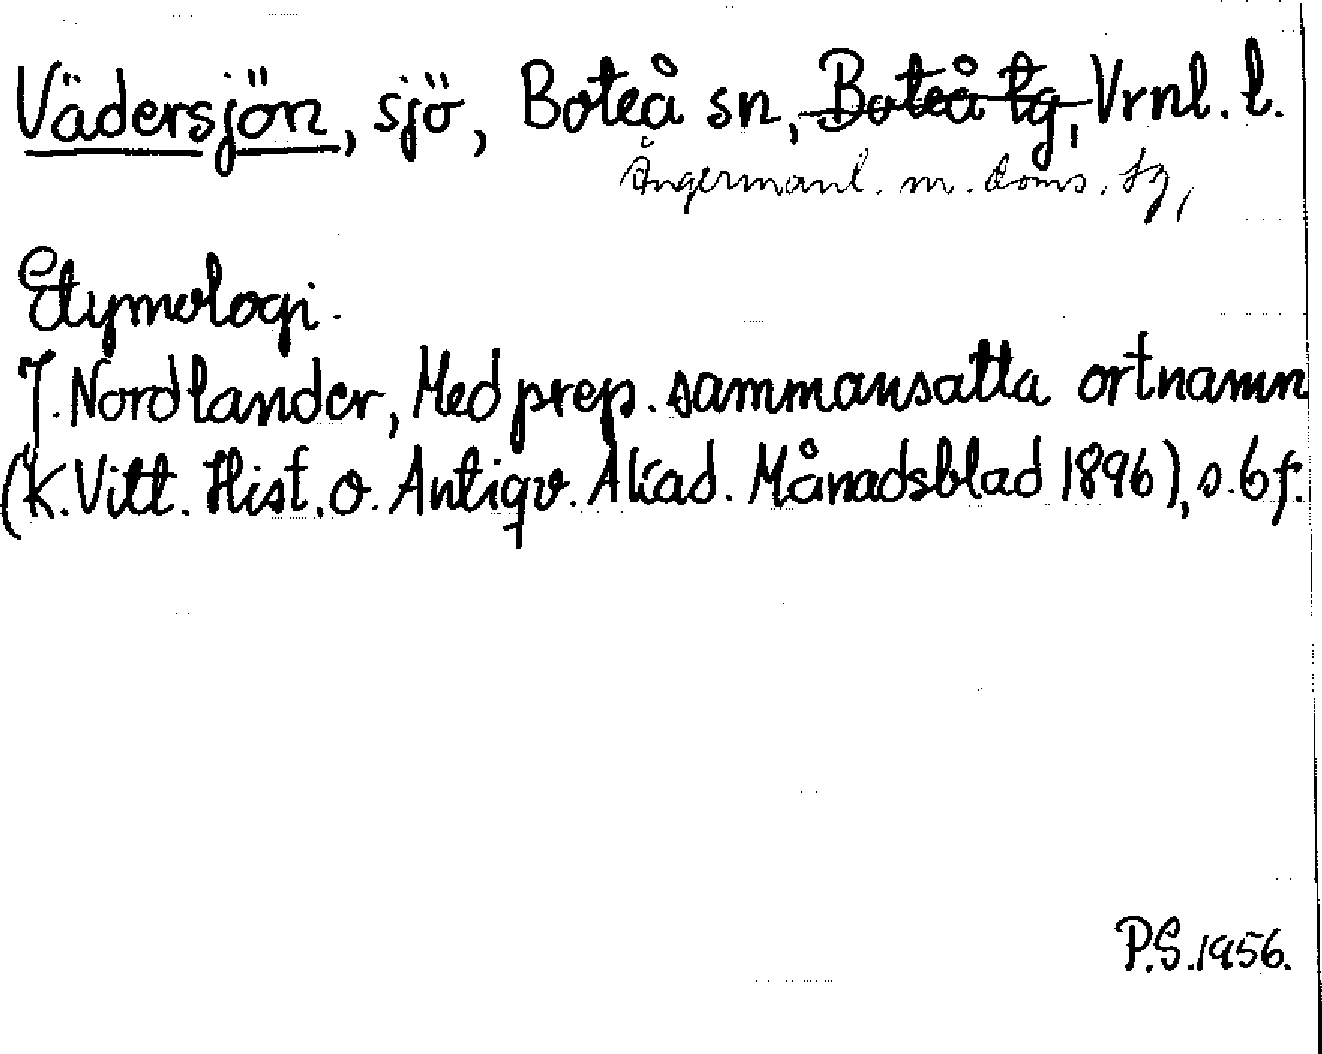 Vädersjön, sjö, Boteå sn, Boteå tg, Vrnl. l.
Ångermanl. m. doms. tg,
Etymologi.
J. Nordlander, Med prep. sammansatta ortnamn
(K. Vitt. Hist. o. Antiqv. Akad. Månadsblad 1896), s. 6 f.
P.S. 1956.